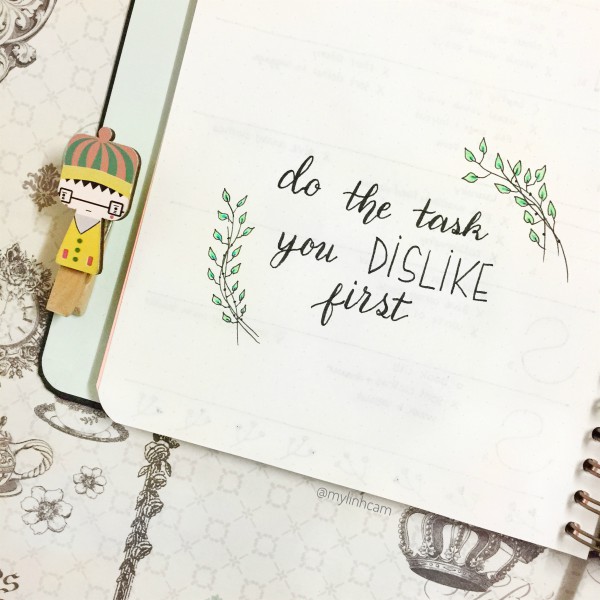 do the task
you DiSLiKE
first
@mylinhcam